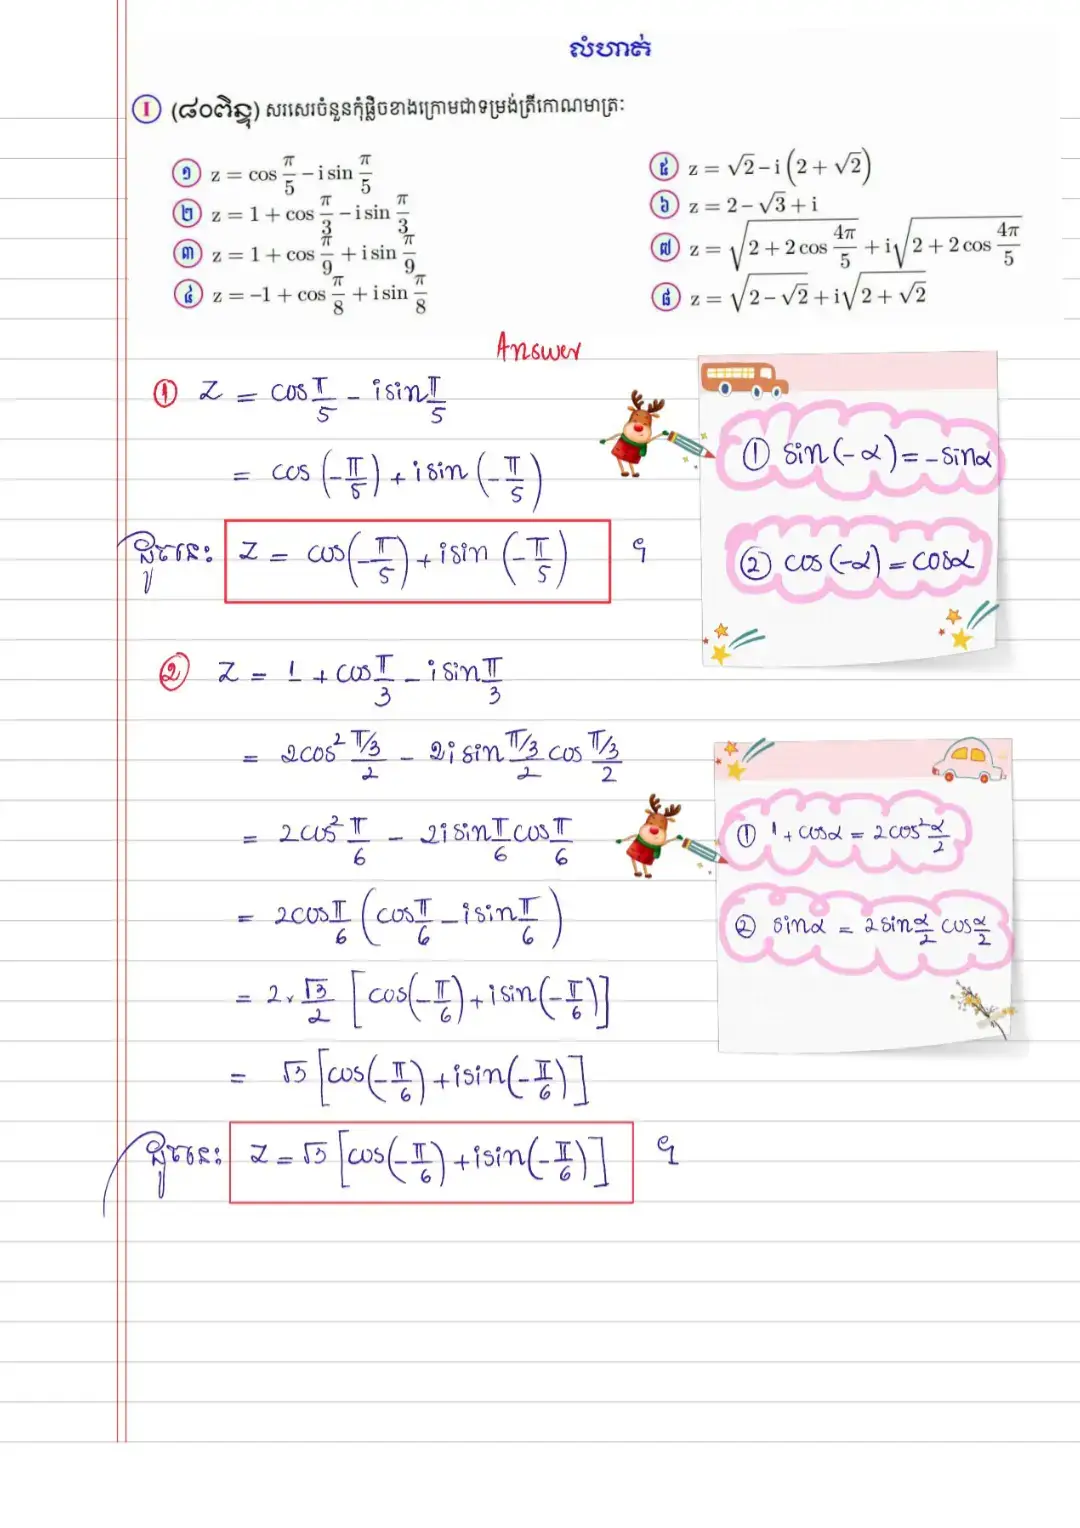 លំហាត់
I (៨០ពិន្ទុ) សរសេរចំនួនកុំផ្លិចខាងក្រោមជាទម្រង់ត្រីកោណមាត្រ:
១ z = cos π/5 − i sin π/5
២ z = 1 + cos π/3 − i sin π/3
៣ z = 1 + cos π/9 + i sin π/9
៤ z = −1 + cos π/8 + i sin π/8
៥ z = √2 − i (2 + √2)
៦ z = 2 − √3 + i
៧ z = √(2 + 2 cos 4π/5) + i√(2 + 2 cos 4π/5)
៨ z = √(2 − √2) + i√(2 + √2)
Answer
① Z = cos π/5 − i sin π/5
= cos (−π/5) + i sin (−π/5)
ដូចនេះ: Z = cos(−π/5) + i sin (−π/5) ។
① sin (−α) = − sinα
② cos (−α) = cosα
② Z = 1 + cos π/3 − i sin π/3
= 2cos² (π/3)/2 − 2i sin (π/3)/2 cos (π/3)/2
= 2cos² π/6 − 2i sin π/6 cos π/6
= 2cos π/6 (cos π/6 − i sin π/6)
= 2 × √3/2 [cos(−π/6) + i sin(−π/6)]
= √3 [cos(−π/6) + i sin(−π/6)]
ដូចនេះ: Z = √3 [cos(−π/6) + i sin(−π/6)] ។
① 1 + cosα = 2cos² α/2
② sinα = 2 sin α/2 cos α/2